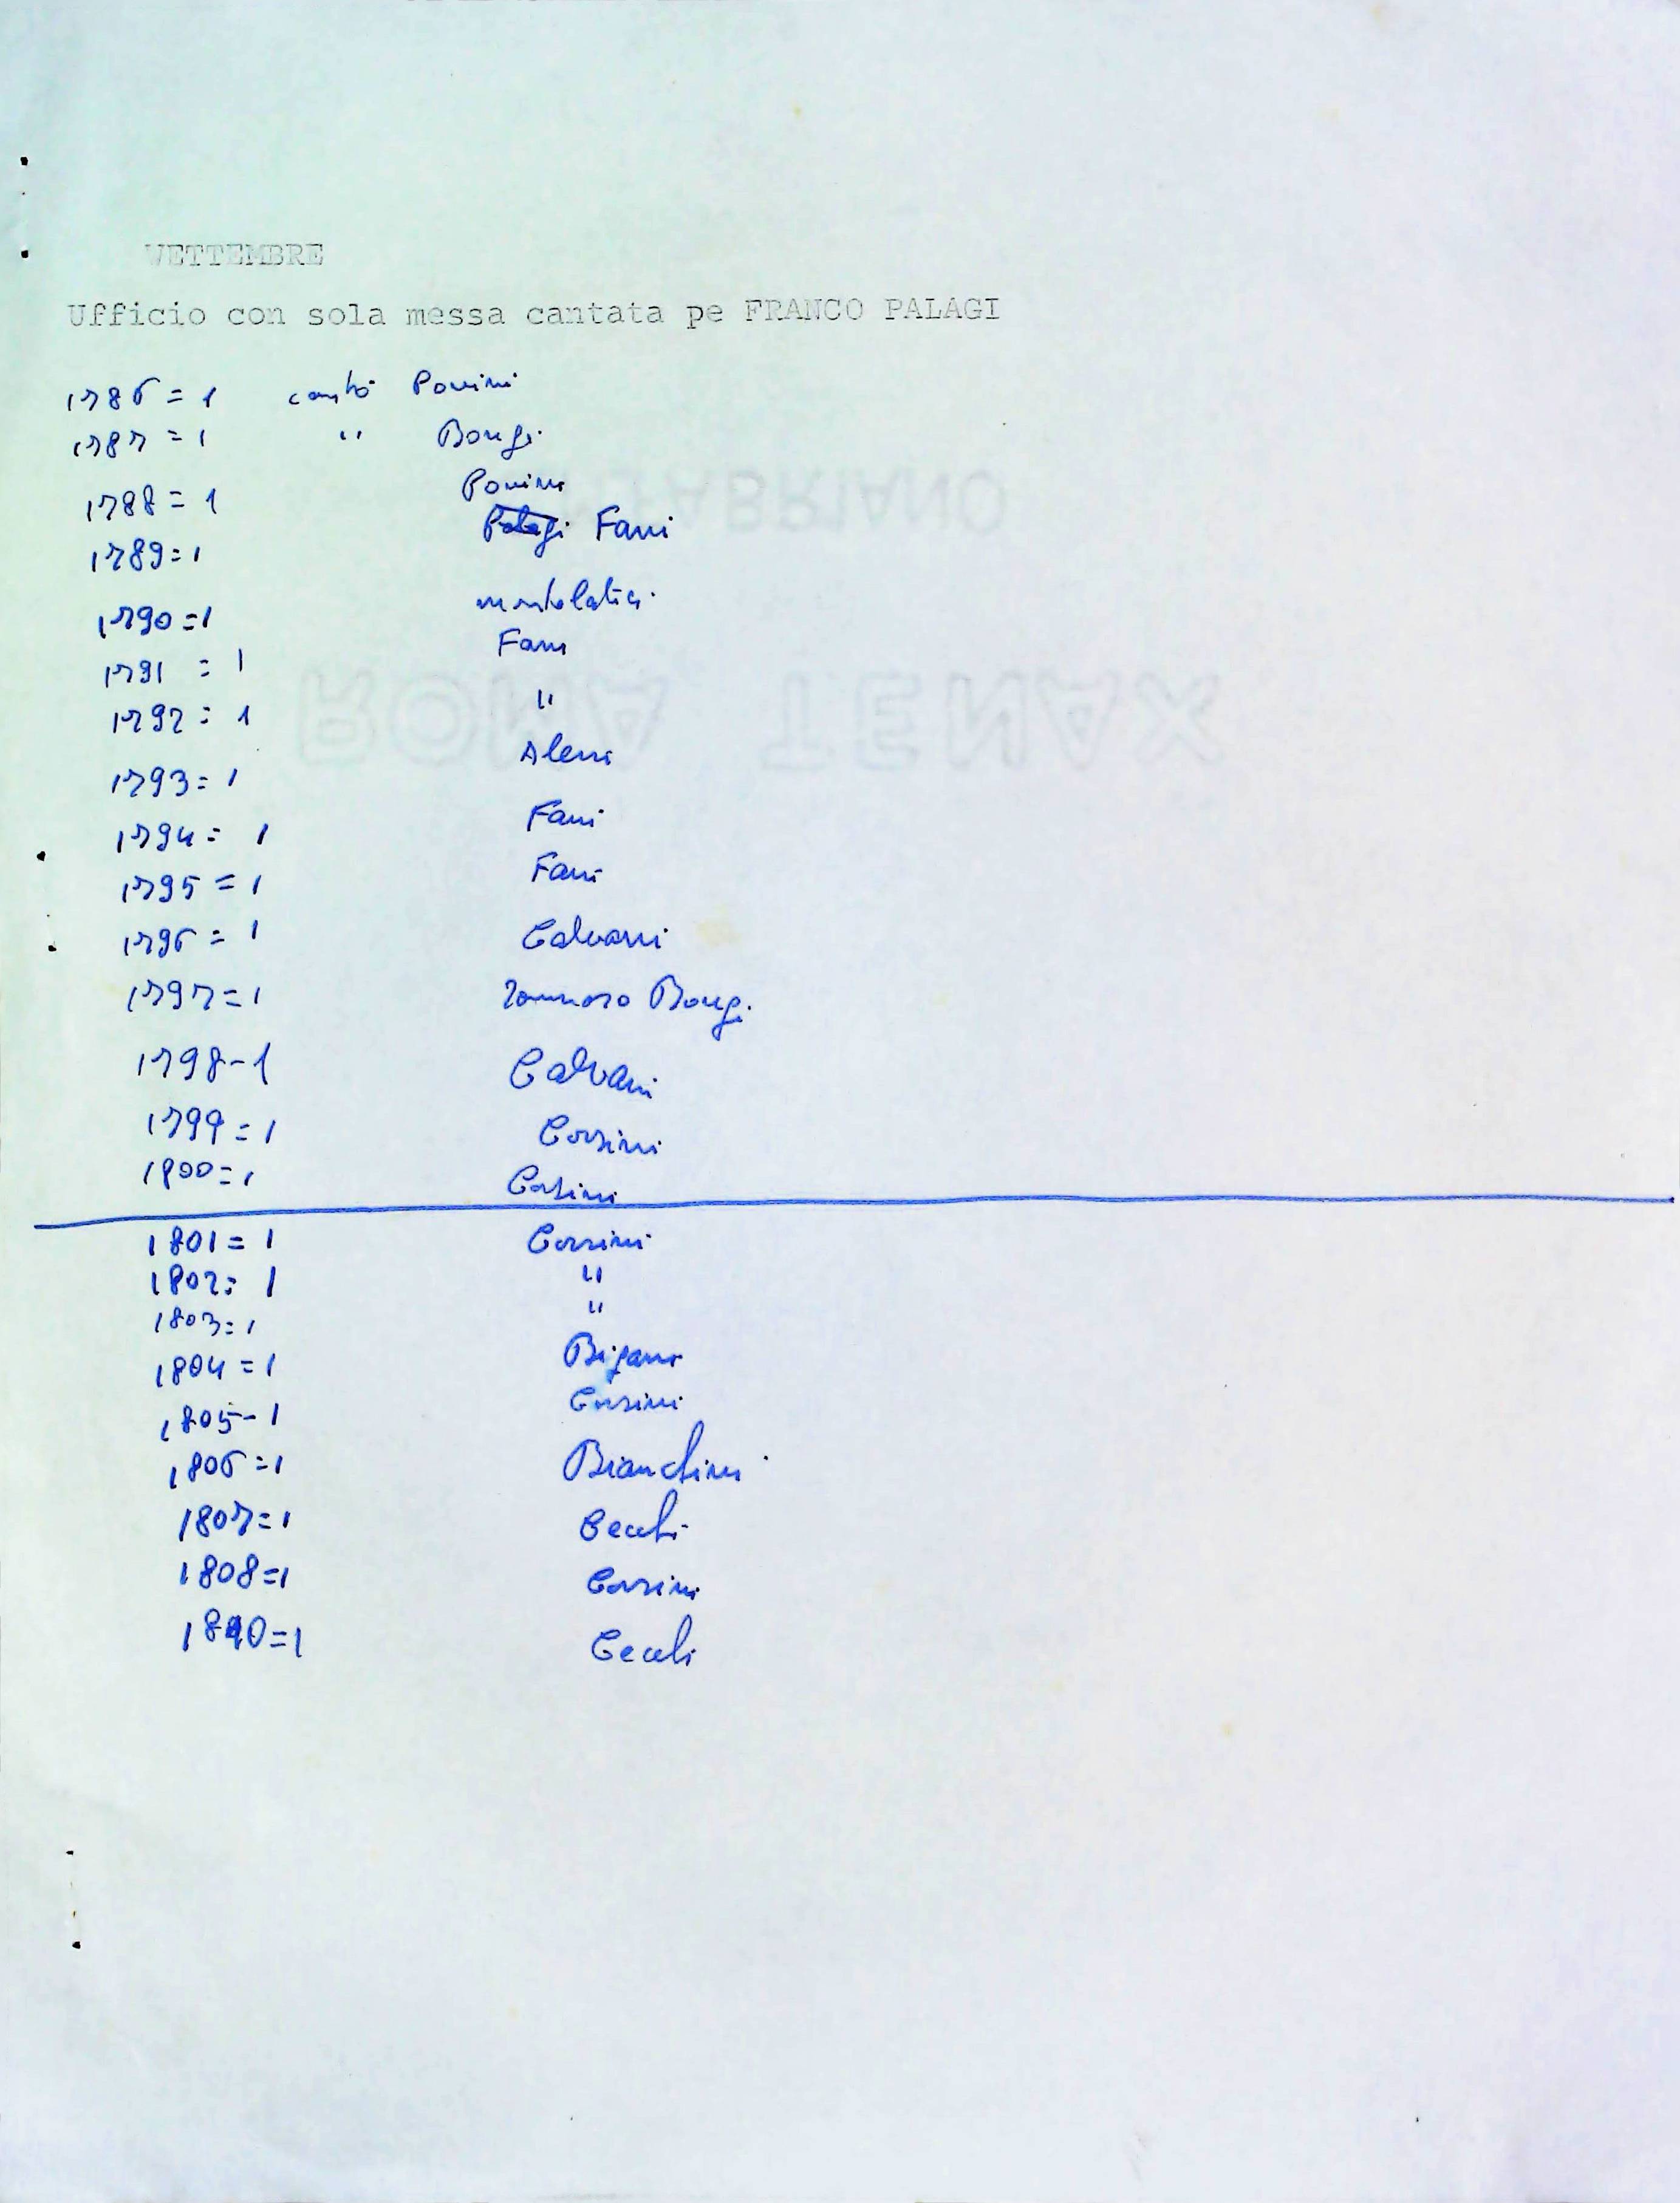 VETTEMBRE
Ufficio con sola messa cantata pe FRANCO PALAGI
1786 = 1 cantò Povini
1787 = 1 " Bongi
1788 = 1 Povini
1789 = 1 Palagi Fani
1790 = 1 montelatici
1791 = 1 Fani
1792 = 1 "
1793 = 1 Alessi
1794 = 1 Fani
1795 = 1 Fani
1796 = 1 Calvani
1797 = 1 Tommaso Bongi
1798 - 1 Calvani
1799 = 1 Corsini
1800 = 1 Corsini
1801 = 1 Corsini
1802 = 1 "
1803 = 1 "
1804 = 1 Bigani
1805 - 1 Corsini
1806 = 1 Bianchini
1807 = 1 Cecchi
1808 = 1 Corsini
1810 = 1 Cecchi
FABRIANO
ROMA TENAX